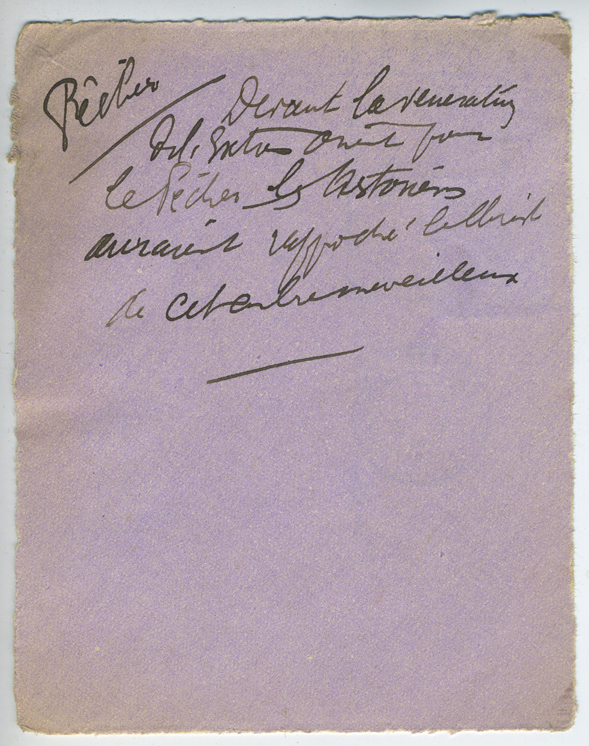 Pêcher
Devant la vénération
de l'Extrême Orient pour
le Pêcher les historiens
auraient rapproché
de cet arbre merveilleux